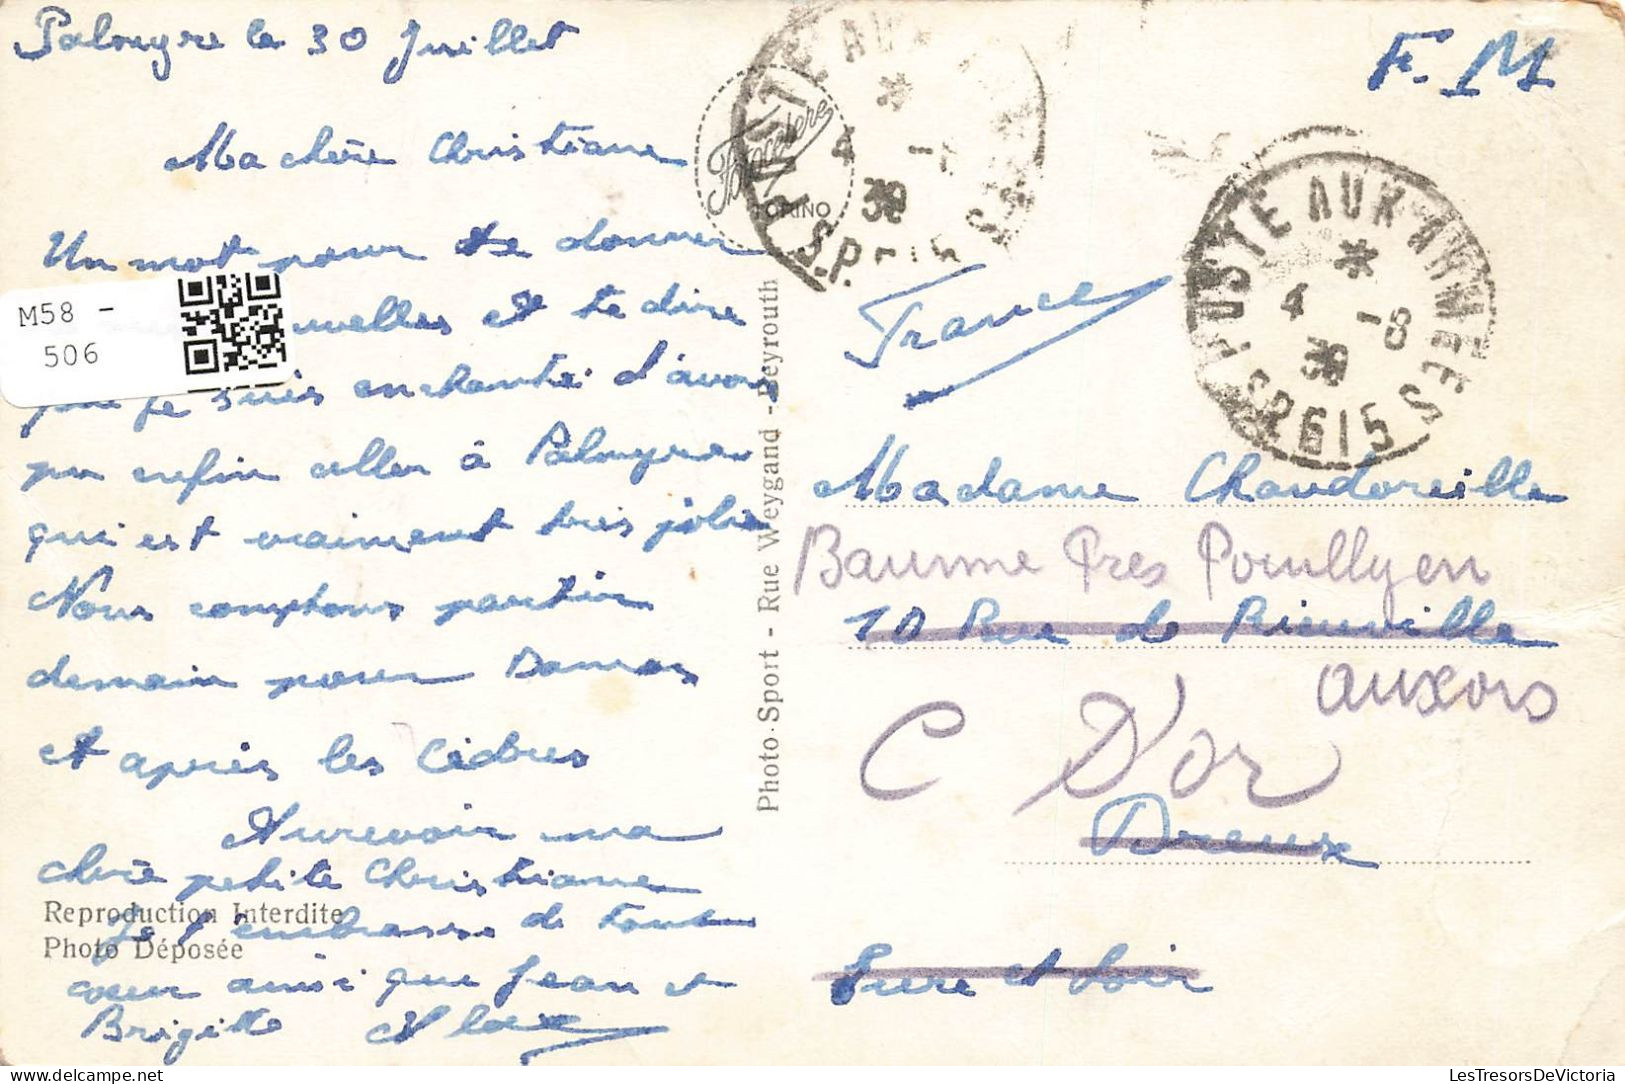 Palmyre le 30 Juillet
F. M
Ma chère Christiane
Un mot pour te donner
nouvelles et te dire
que je suis enchanté d'avoir
pu enfin aller à Palmyre
qui est vraiment très jolie
Nous comptons partir
demain pour Damas
et après les Cèdres
Aurevoir ma
chère petite Christiane
Je t'embrasse de tout
coeur ainsi que Jean et
Brigitte Alex
Reproduction Interdite
Photo Déposée
M58 -
506
Photo-Sport - Rue Weygand - Beyrouth
Fotocelere
TORINO
POSTE AUX ARMEES
4 -8
39
S.P. 615
POSTE AUX ARMEES
4 -8
39
S.P. 615
France
Madame Chandoreille
Baume Pres Pouilly en
10 Rue de Rieuville
auxois
C D'or
Dreux
Eure et Loir
LesTresorsDeVictoria